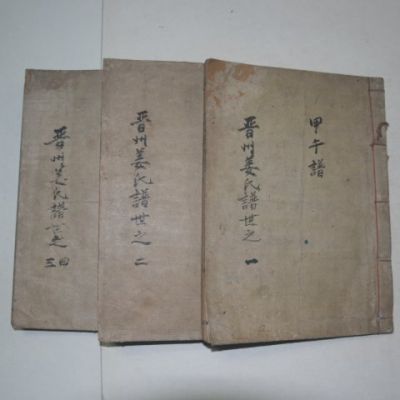 甲午譜
晉州姜氏譜世之 一
晉州姜氏譜世之 二
晉州姜氏譜世之 三 四